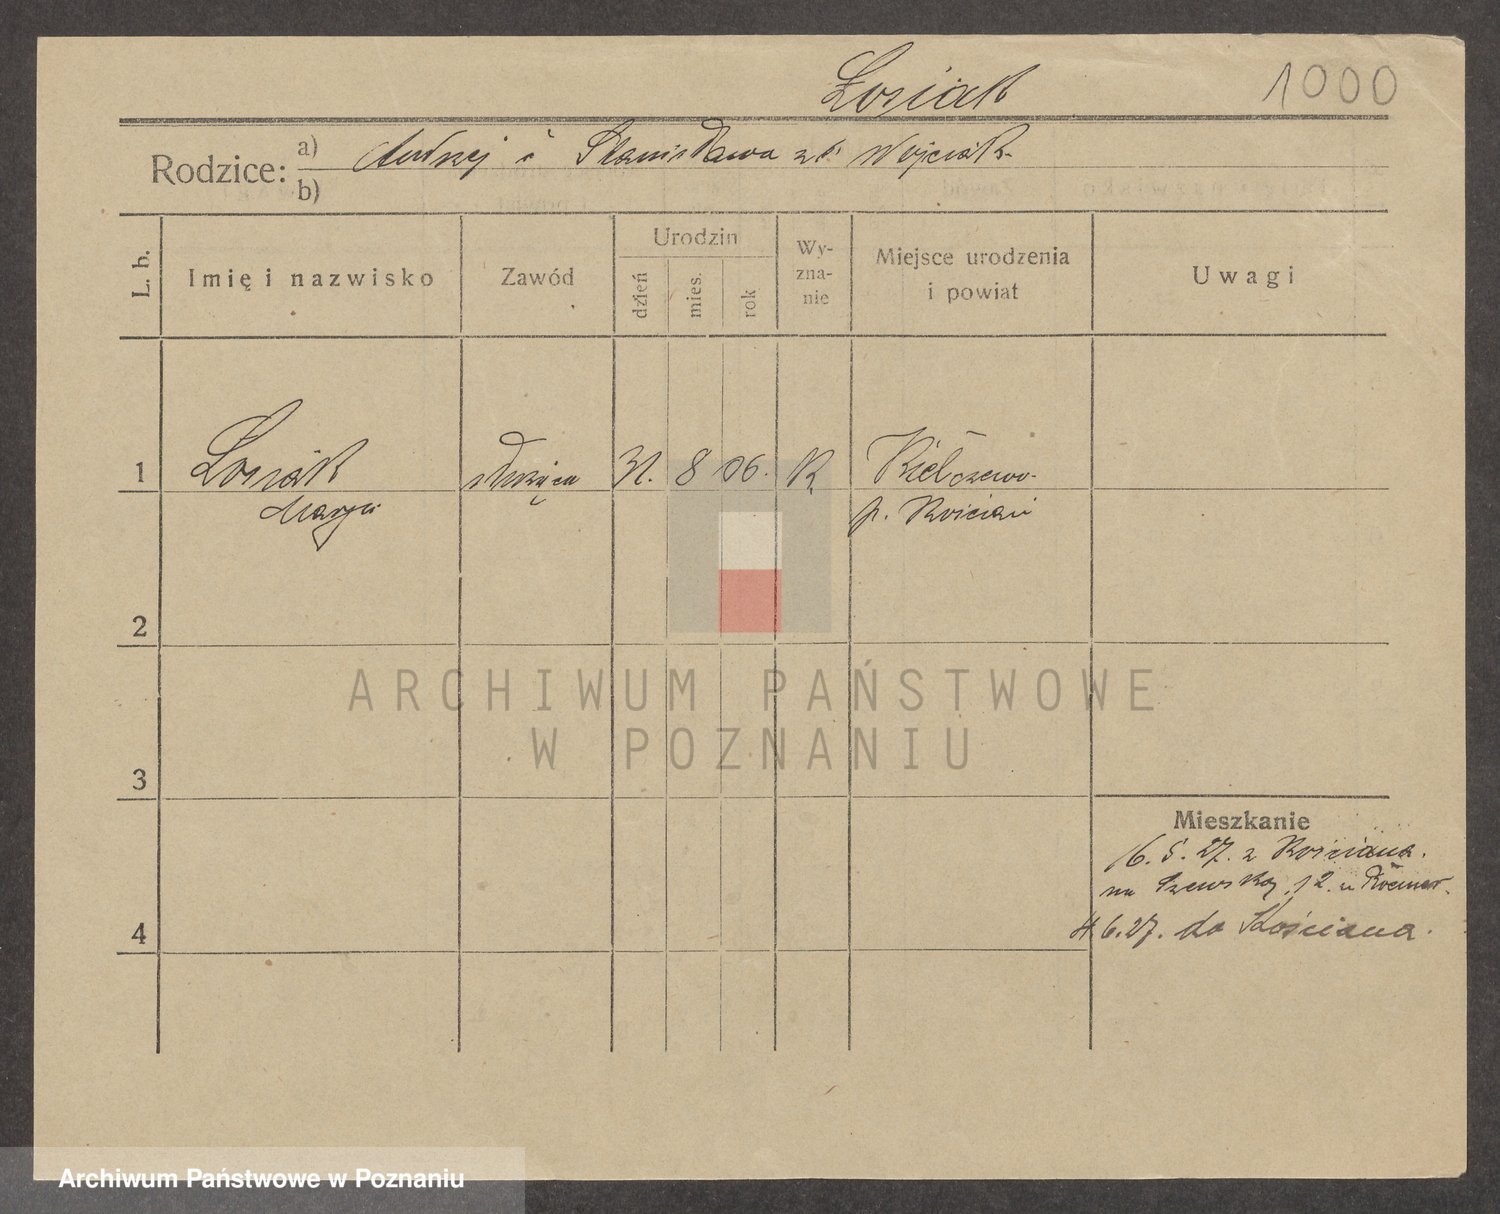 Łosiak
1000
Rodzice: a) Andrzej i Stanisława z d. Wojciak
b)
L. b.
Imię i nazwisko
Zawód
Urodzin
dzień
mies.
rok
Wy-
zna-
nie
Miejsce urodzenia
i powiat
Uwagi
1 Łosiak służąca 31. 8 06. K Kiełczewo
Marja p. Kościan
2
ARCHIWUM PAŃSTWOWE
W POZNANIU
3
Mieszkanie
16. 5. 27. z Kościana.
na Szewską 12. u
4
4.6.27. do Kościana.
Archiwum Państwowe w Poznaniu